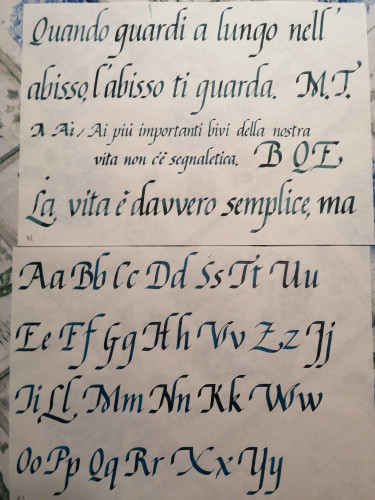 Quando guardi a lungo nell'
abisso, l'abisso ti guarda. M.T.
A Ai / Ai più importanti bivi della nostra
vita non c'è segnaletica. B QE
La, vita è davvero semplice, ma
Aa Bb Cc Dd Ss Tt Uu
Ee Ff Gg Hh Vv Zz Jj
Ii Ll, Mm Nn Kk Ww
Oo Pp Qq Rr Xx Yy